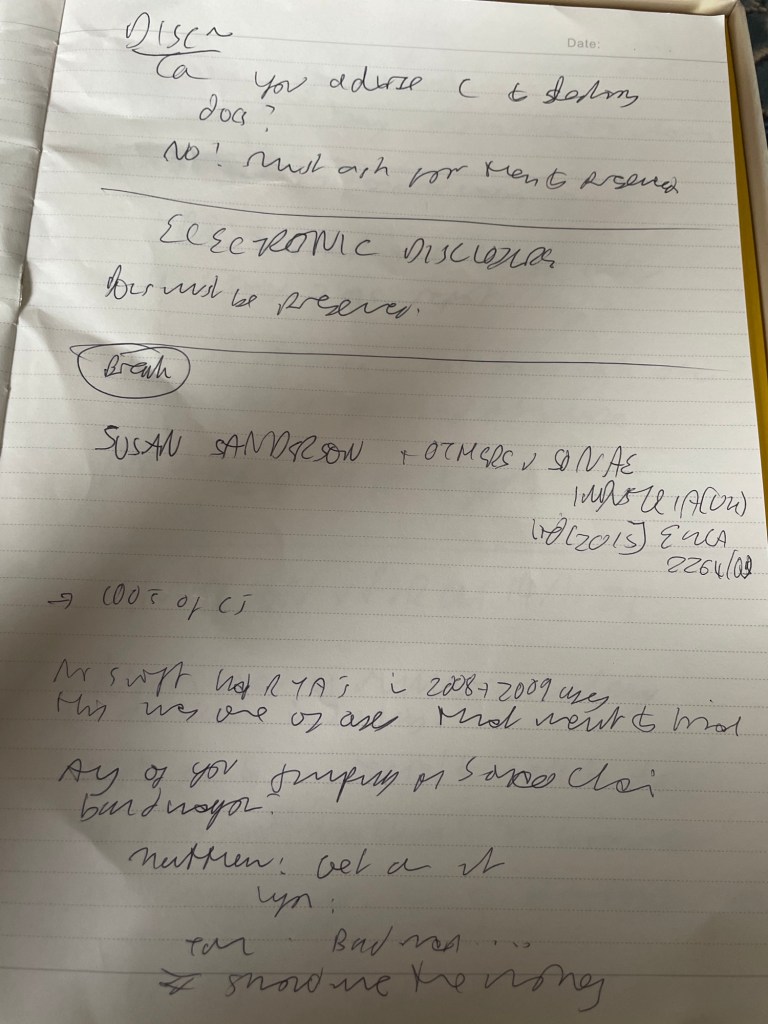 Date:
DISCN
Ca you advise C to destroy
docs?
No! Must ask for them to preserved
ELECTRONIC DISCLOSURE
Docs must be preserved.
Break
SUSAN SANDERSON + OTHERS v SONAE
INDUSTRIA (UK)
Ltd (2015) EWCA
2264 (QB)
→ 100s of Cs
Mr Swift had RTA's i 2008 + 2009
this was one of cases that went to trial
Any of you jumping on Sonae Clai
bandwagon?
Matthew: Get on it
Lyn:
Bad
Show me the money